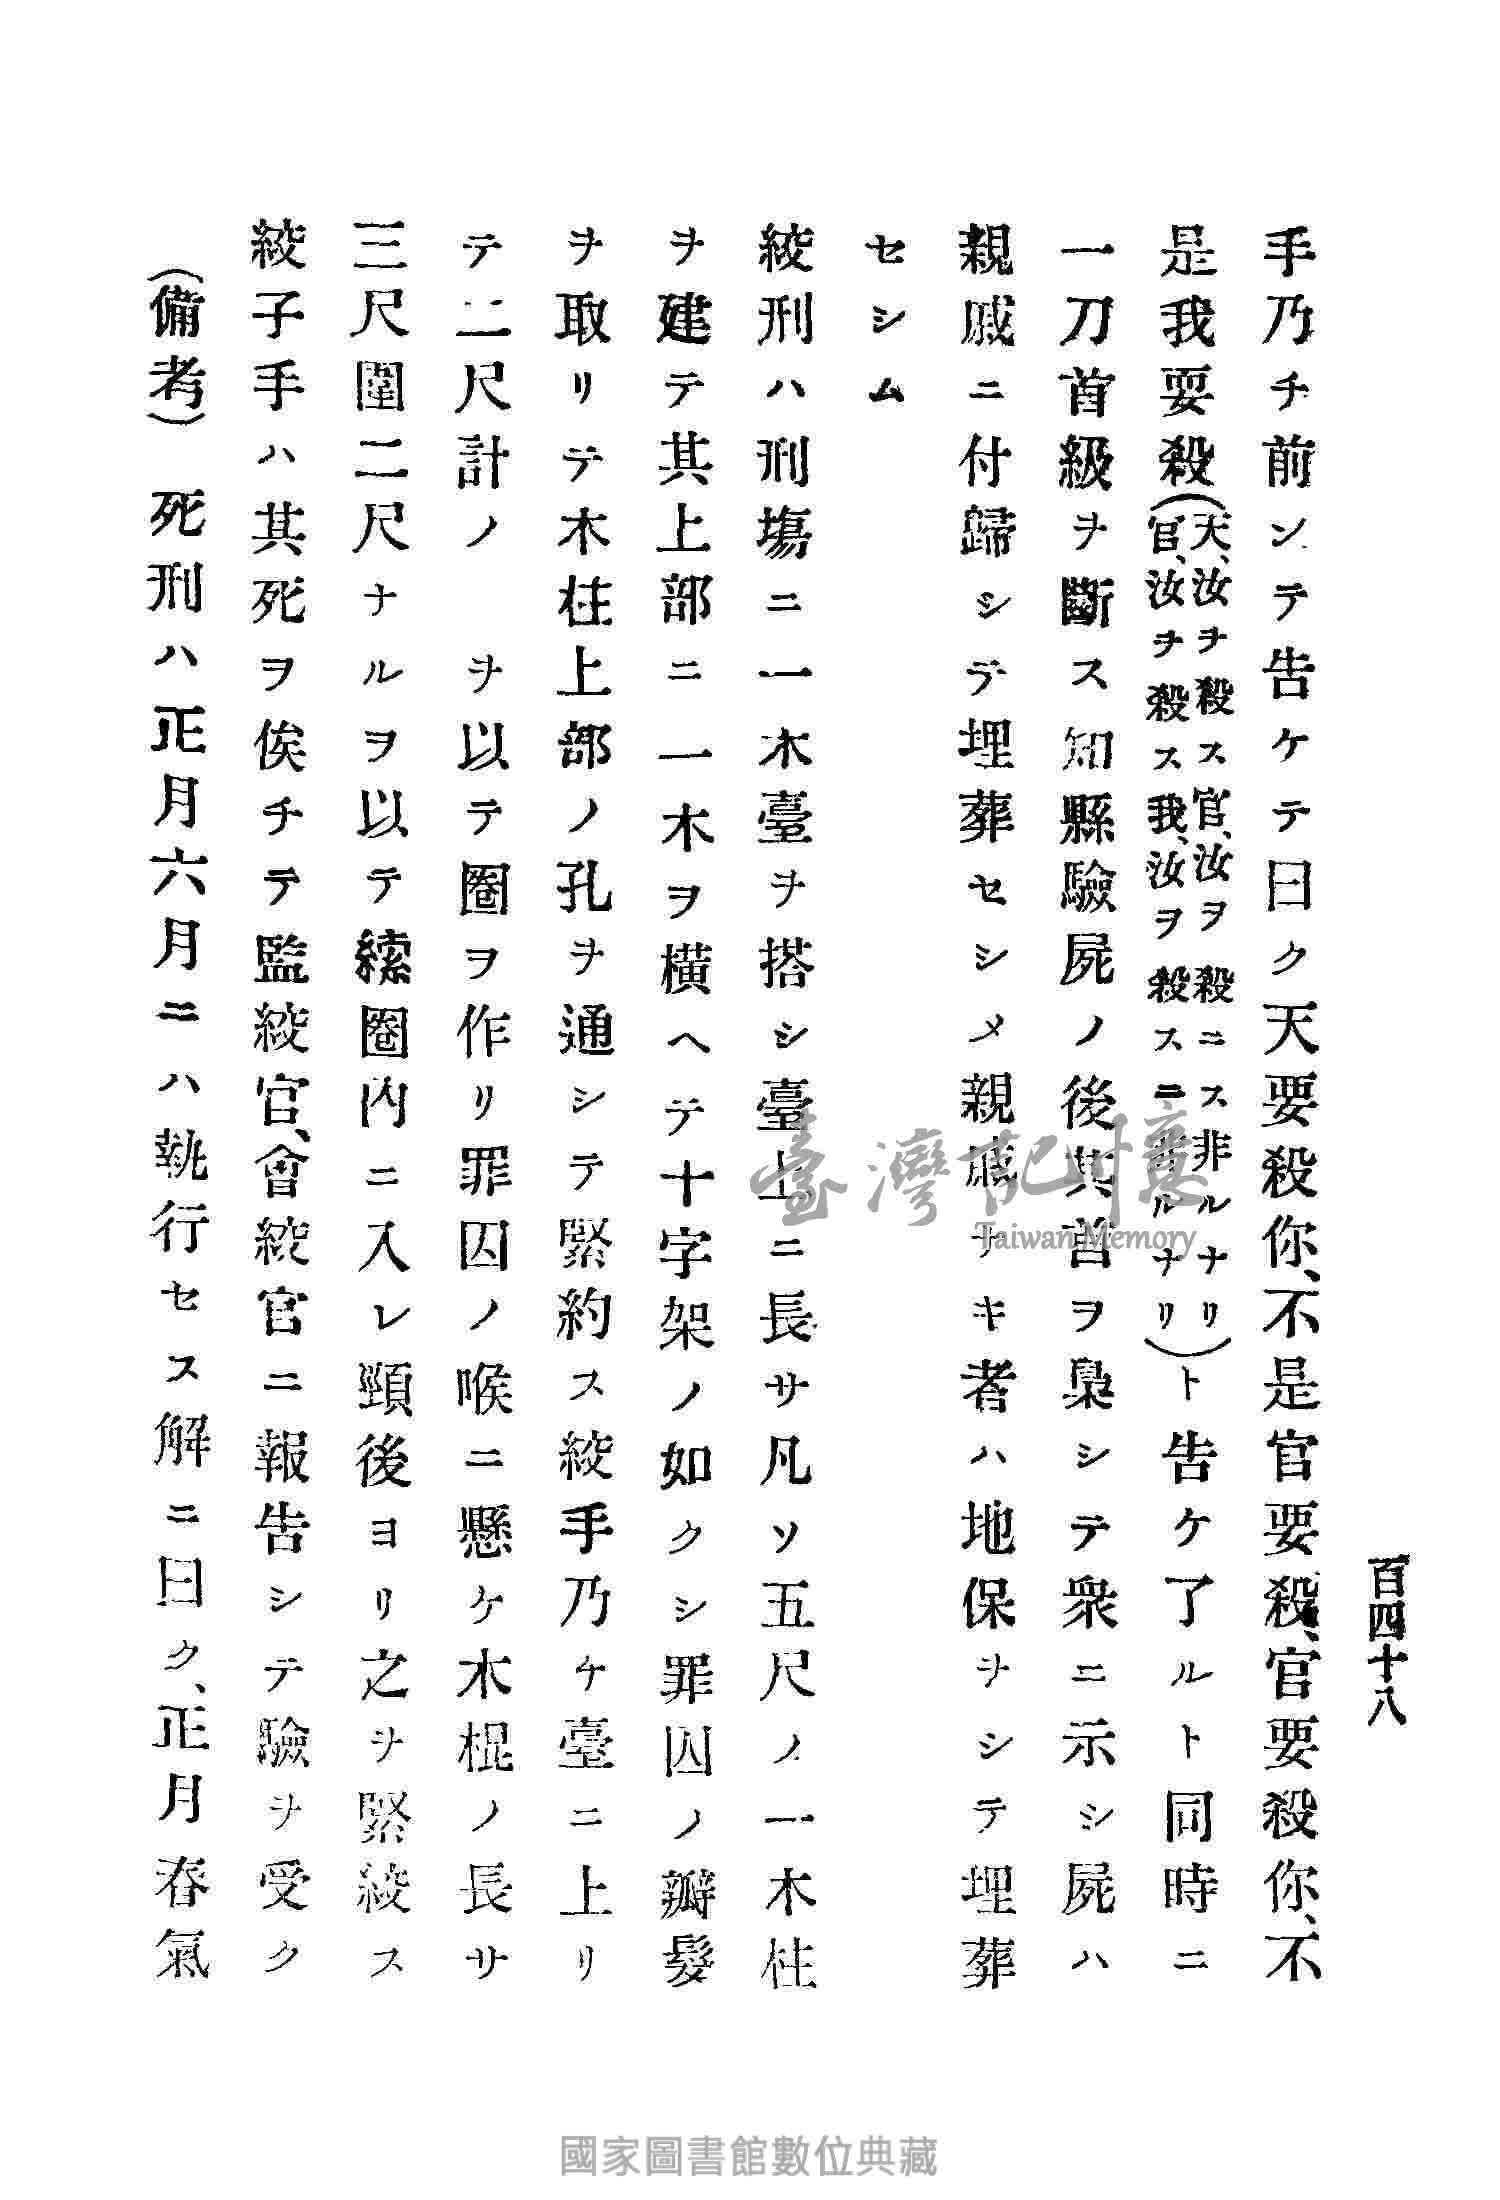 百四十八
手乃チ前ンテ告ケテ曰ク天要殺你、不是官要殺、官要殺你、不
是我要殺(天、汝ヲ殺ス官、汝ヲ殺ニス非ルナリ
官、汝チ殺ス我、汝ヲ殺スニ非ルナリ)ト告ケ了ルト同時ニ
一刀首級ヲ斷ス知縣驗屍ノ後其首ヲ梟シテ衆ニ示シ屍ハ
親戚ニ付歸シテ埋葬セシメ親戚ナキ者ハ地保ヲシテ埋葬
セシム
絞刑ハ刑塲ニ一木臺ヲ搭シ臺上ニ長サ凡ソ五尺ノ一木柱
ヲ建テ其上部ニ一木ヲ橫ヘテ十字架ノ如クシ罪囚ノ瓣髮
ヲ取リテ木柱上部ノ孔ヲ通シテ緊約ス絞手乃ケ臺ニ上リ
テ二尺計ノヲ以テ圈ヲ作リ罪囚ノ喉ニ懸ケ木棍ノ長サ
三尺圍二尺ナルヲ以テ繠圈內ニ入レ頸後ヨリ之ヲ緊絞ス
絞子手ハ其死ヲ俟チテ監絞官、會絞官ニ報告シテ驗ヲ受ク
(備考) 死刑ハ正月六月ニハ執行セス解ニ曰ク、正月春氣
臺灣記憶
Taiwan Memory
國家圖書館數位典藏